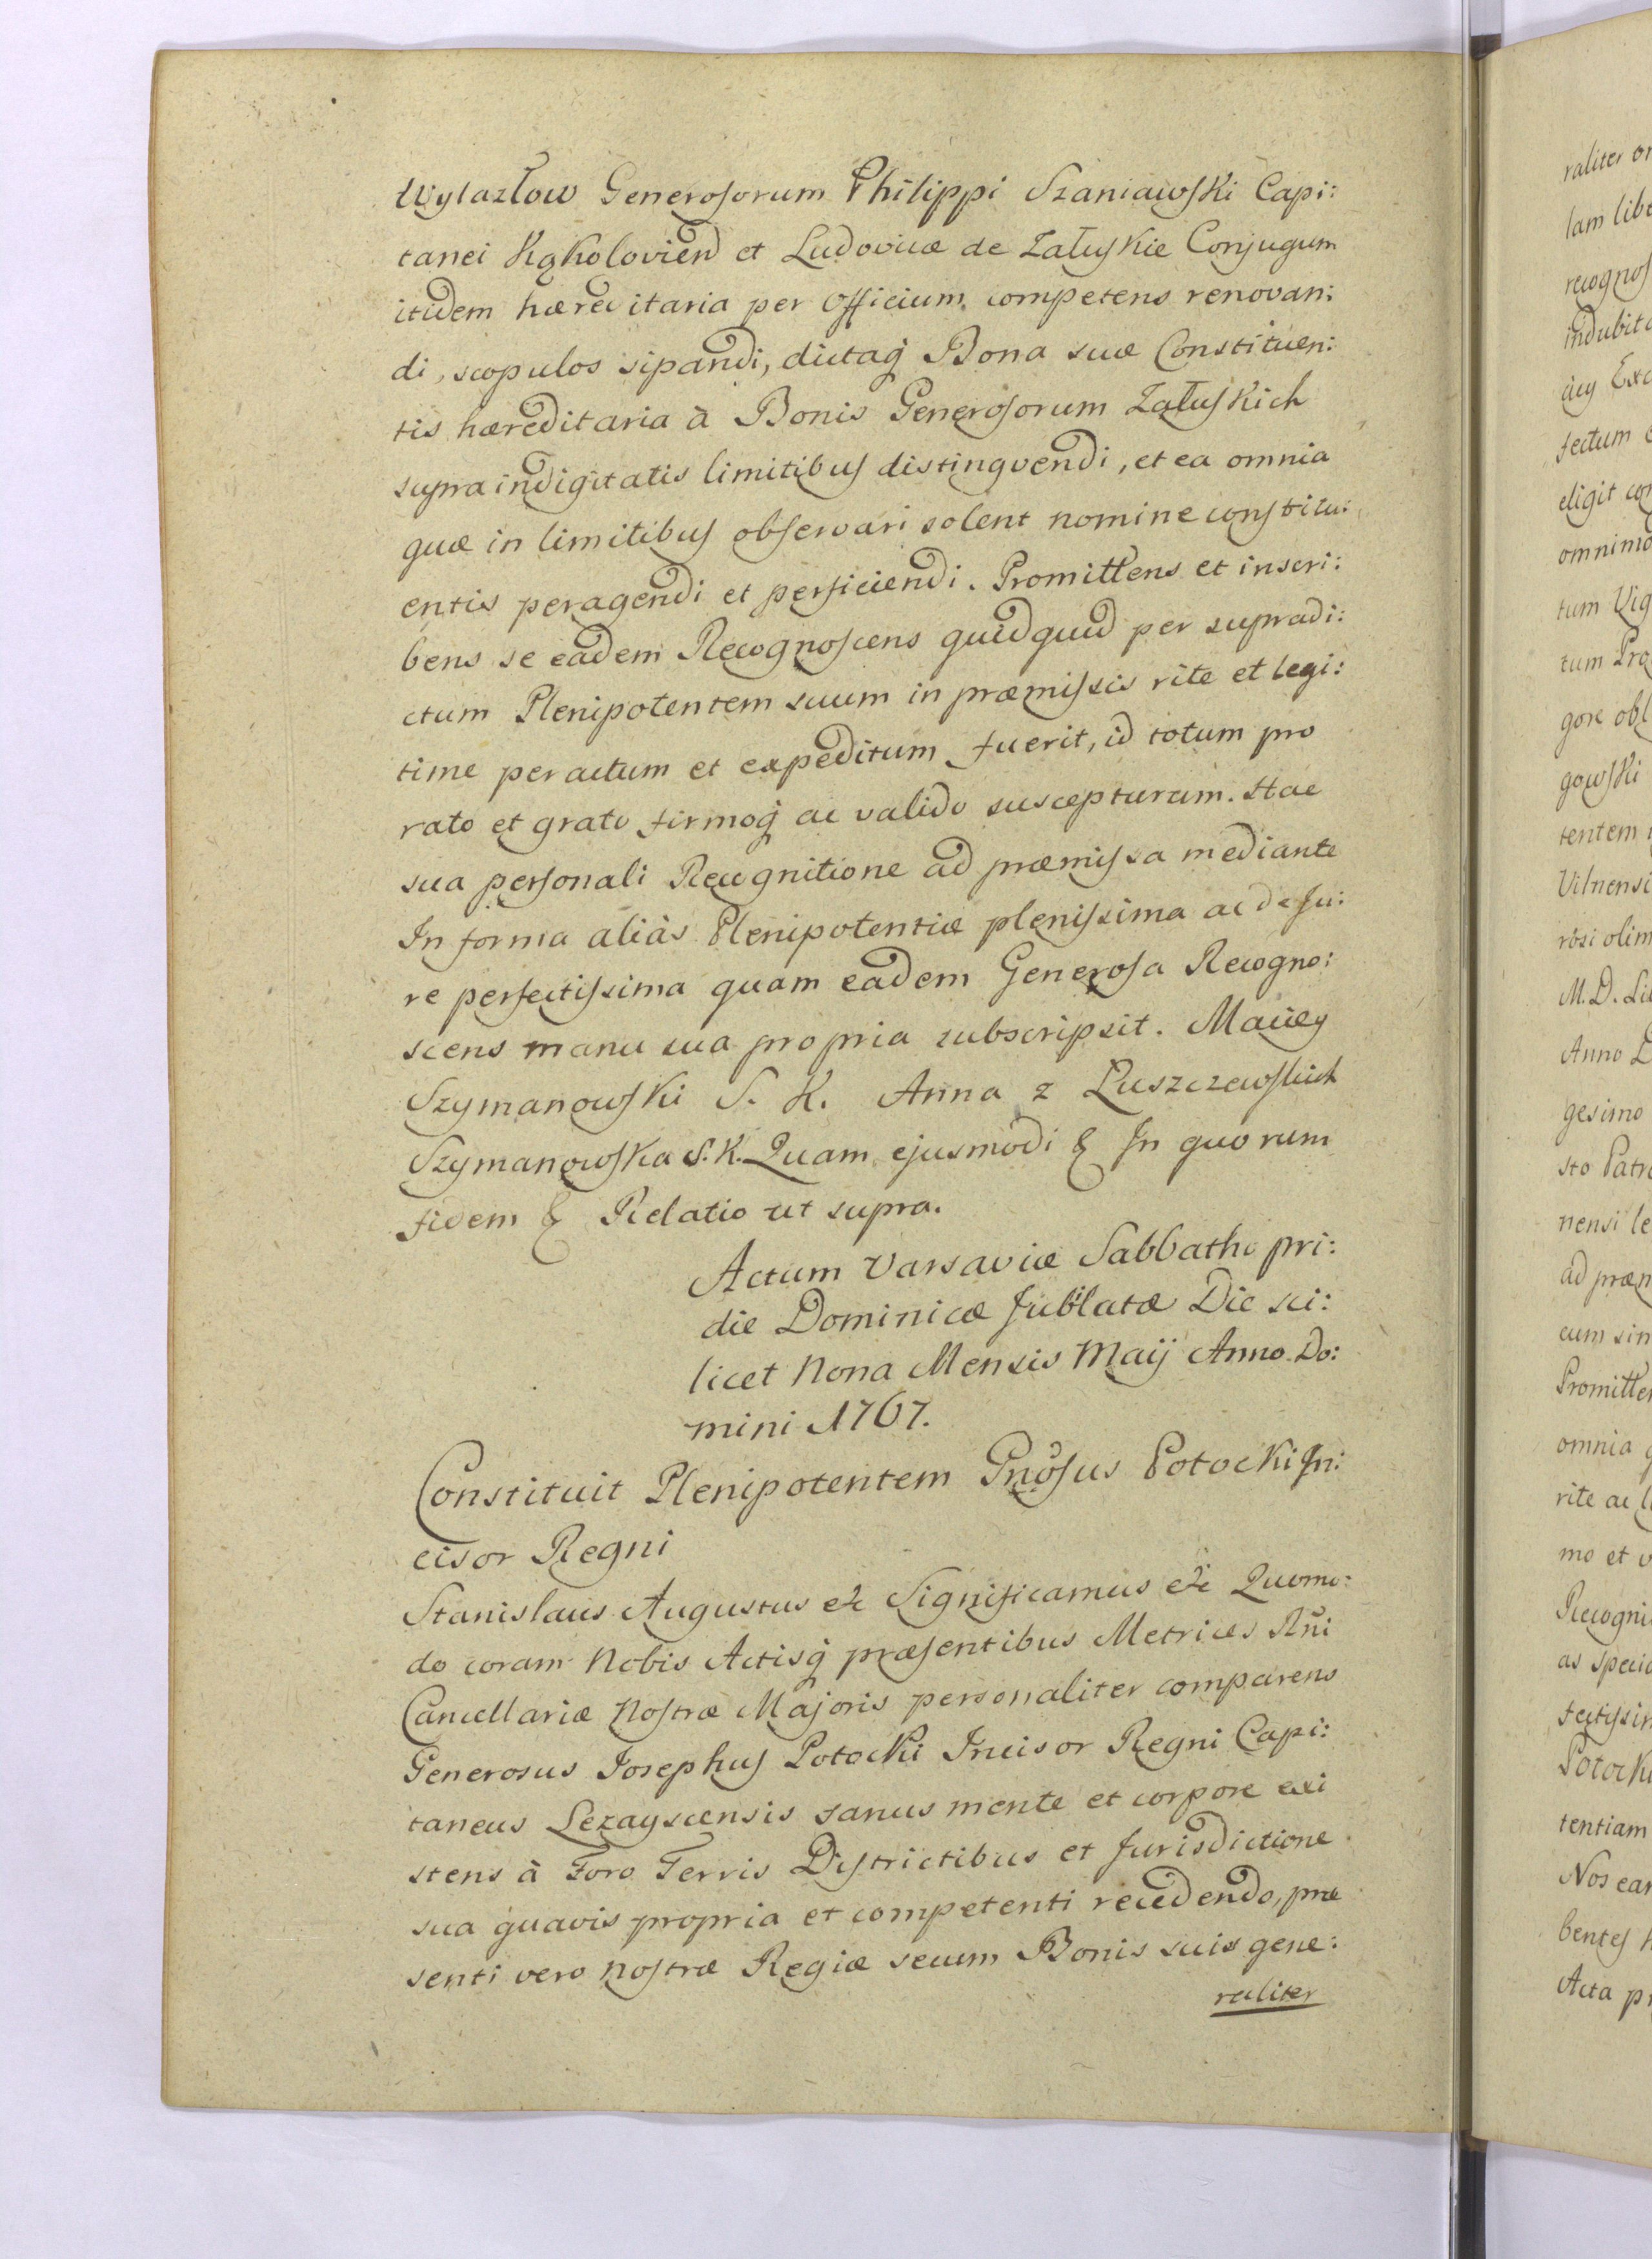 Wylazłow Generosorum Philippi Szaniawski Capi:
tanei Kąkoloviens et Ludovicæ de Załuskie Conjugum
itidem hæreditaria per Officium competens renovan:
di, scopulos sipandi, dictaq̀ Bona suæ Constituen:
tis hæreditaria à Bonis Generosorum Załuskich
supra indigitatis limitibus distingvendi, et ea omnia
quæ in limitibus observari solent nomine constitu:
entis peragendi et perficiendi. Promittens et inscri:
bens se eadem Recognoscens quidquid per supradi:
ctum Plenipotentem suum in præmissis rite et legi:
time peractum et expeditum fuerit, id totum pro
rato et grato firmoq̀ ac valido suscepturam. Hac
sua personali Recognitione ad præmissa mediante
In forma aliàs Plenipotentiæ plenissima ac de Ju:
re perfectissima quam eadem Generosa Recogno:
scens manu sua propria subscripsit. Maciey
Szymanowski S. K. Anna z Luszczewskich
Szymanowska S.K. Quam ejusmodi & In quorum
fidem & Relatio ut supra.
Actum Varsaviæ Sabbatho pri:
die Dominicæ Jubilatæ Die sci:
licet Nona Mensis Maÿ Anno Do:
mini 1767.
Constituit Plenipotentem Gnosus Potocki In:
cisor Regni
Stanislaus Augustus &c Significamus &c Quomo:
do coram Nobis Actisq̀ præsentibus Metrices Rni
Cancellariæ Nostræ Majoris personaliter comparens
Generosus Josephus Potocki Incisor Regni Capi:
taneus Lezayscensis sanus mente et corpore exi
stens à Foro Terris Districtibus et Jurisdictione
sua quavis propria et competenti recedendo, præ
senti vero Nostræ Regiæ secum Bonis suis gene:
raliter
raliter
lam
recognos
fectum
eligit
omnimo
tum
tum
gore
gowski
tentem
Vilnensi
rosi olim
M. D.
Anno
gesimo
sto
nensi
ad præm
cum
Promitten
omnia
rite ac
mo et
Recogni
as
Potocki
tentiam
Nos
bentes
Acta